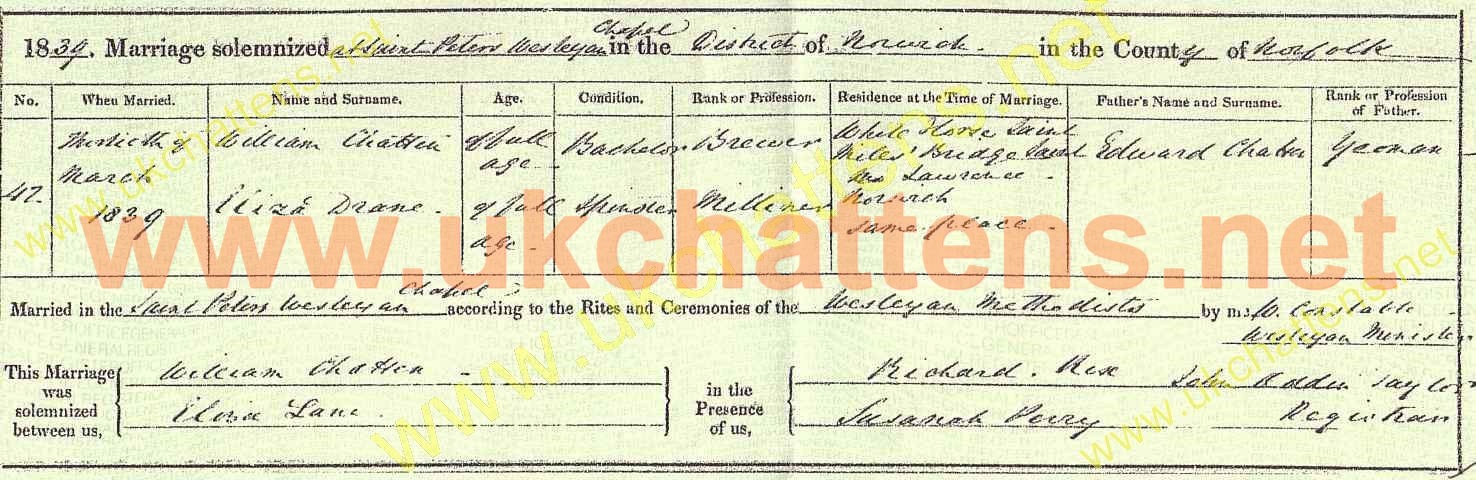 1839. Marriage solemnized at Saint Peters Wesleyan Chapel in the District of Norwich in the County of Norfolk
No. When Married. Name and Surname. Age. Condition. Rank or Profession. Residence at the Time of Marriage. Father's Name and Surname. Rank or Profession of Father.
47. Thirtieth of March 1839 William Chatten of full age Bachelor Brewer White Horse Saint Miles' Bridge Saint Lawrence Norwich Edward Chatten Yeoman
Eliza Drane of full age Spinster Milliner same place
www.ukchattens.net
Married in the Saint Peters Wesleyan Chapel according to the Rites and Ceremonies of the Wesleyan Methodists by me, W. Constable
Wesleyan Minister
This Marriage was solemnized between us,
William Chatten
Eliza Lane
in the Presence of us,
Richard Rix
Susanah Perry
John Taylor
Registrar
www.ukchattens.net
www.ukchattens.net
www.ukchattens.net